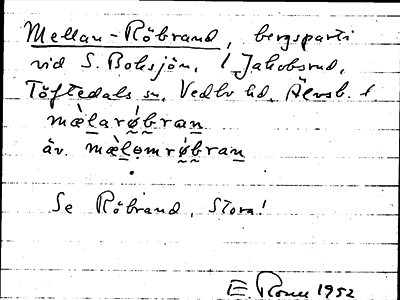 Mellan-Röbrand, bergsparti
vid S. Boksjön, l Jakobsrud,
Töftedals sn, Vedbo hd, Älvsb. l.
mæ̀larǿbran
äv. mæ̀lomrǿbran
Se Röbrand, Stora!
E. 1952